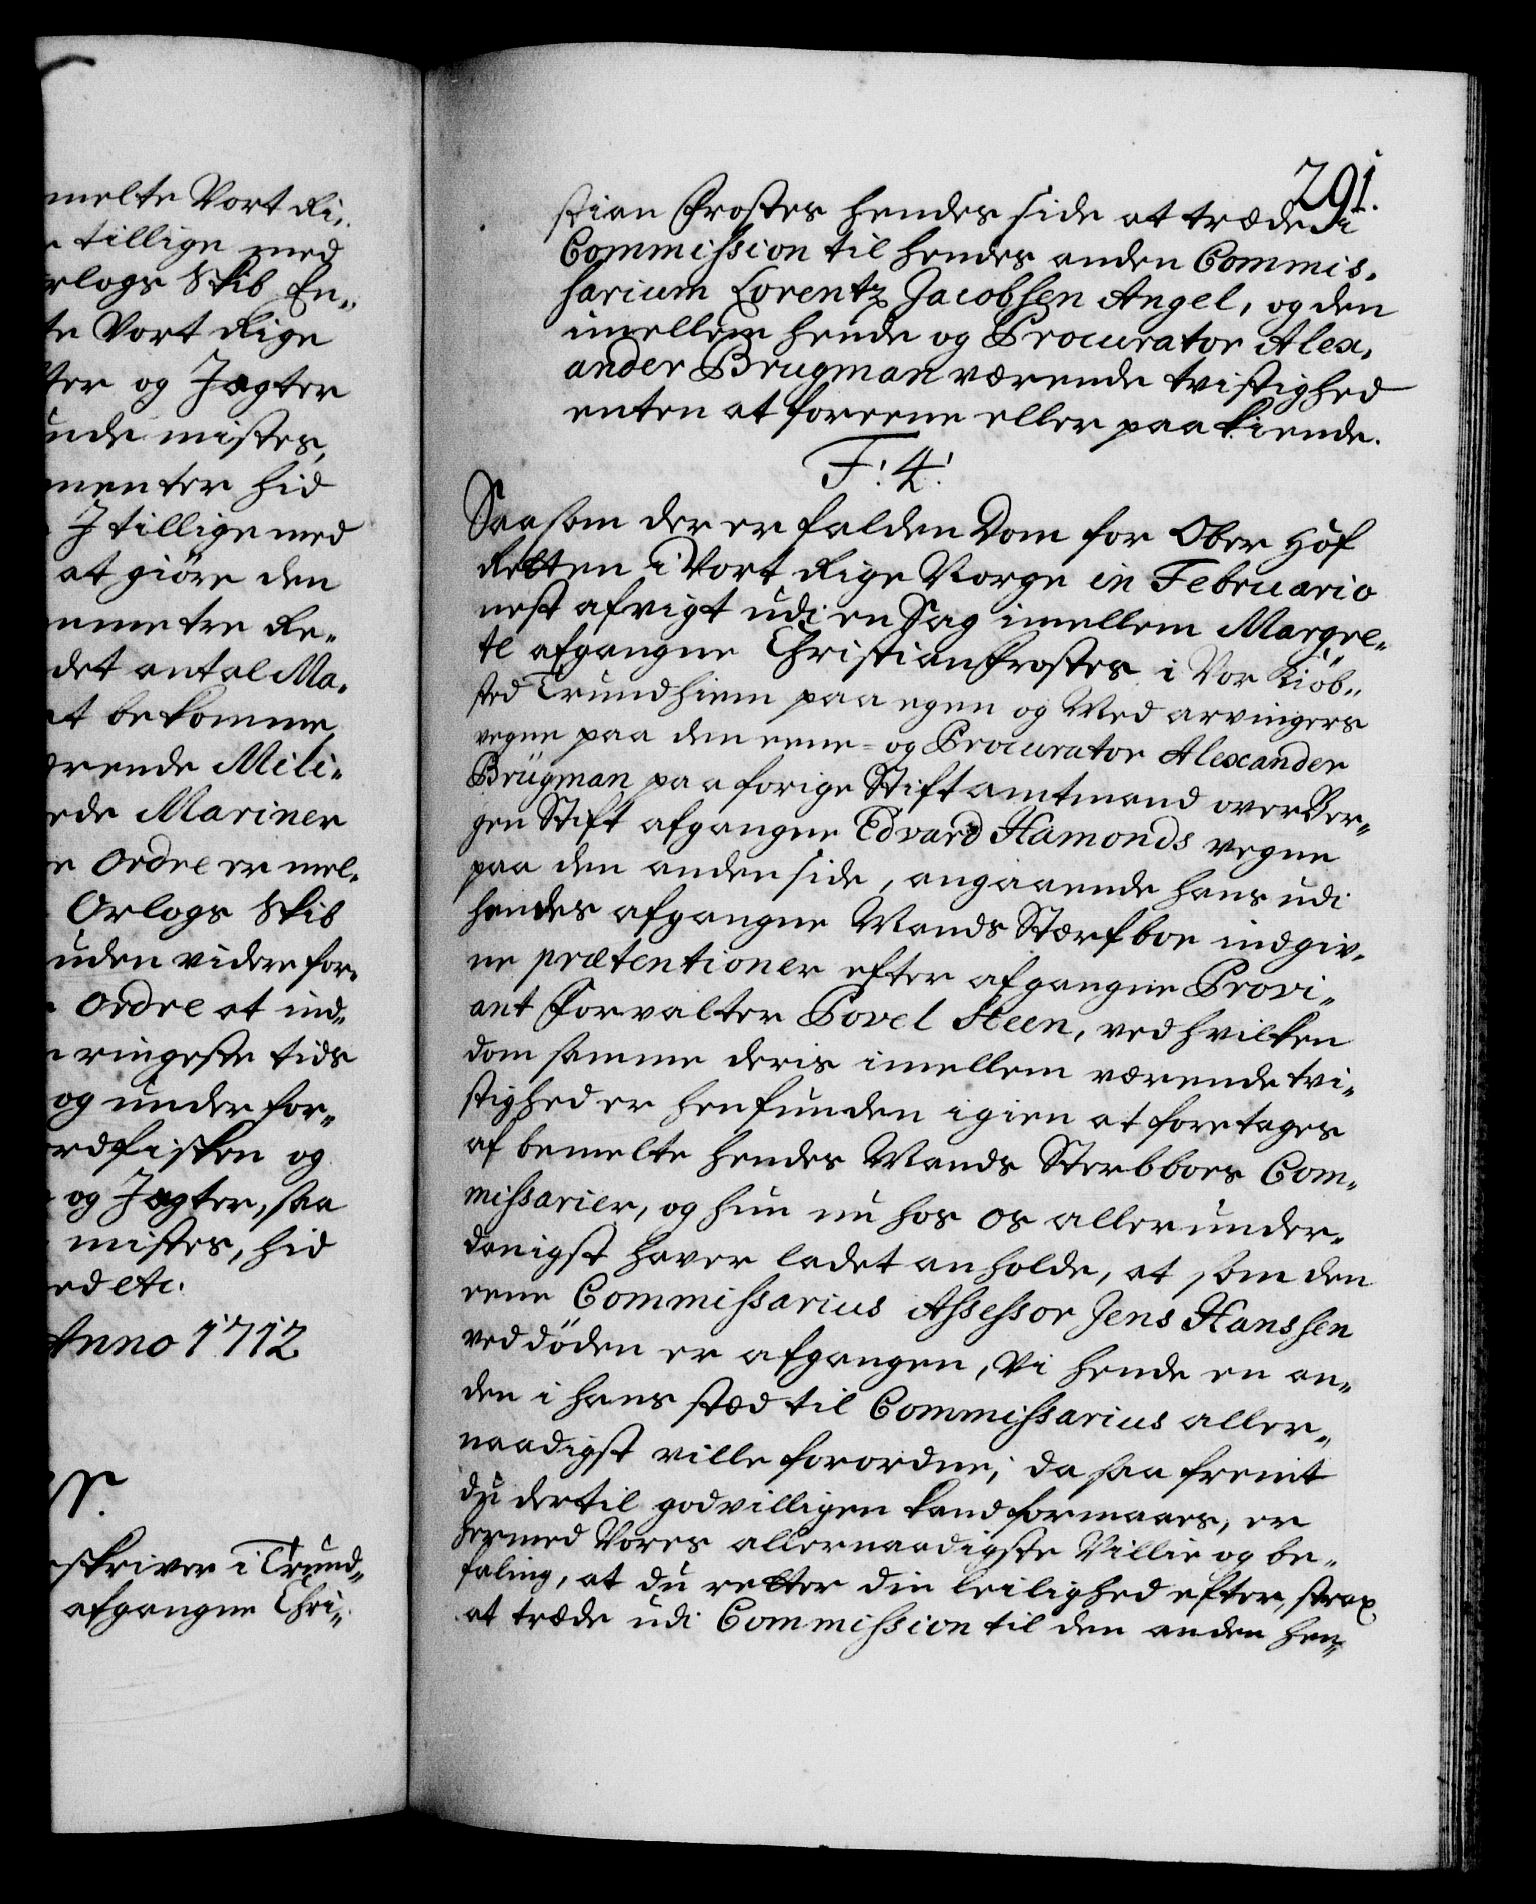 melte Vort Ri-
tillige med
rlogs Skib En-
te Vort Rige
ter og Jagter
unde mistes,
menter hid
J tillige med
at giöre den
nmetre Re-
det antal Ma-
at bekomme
erende Mili-
ede Mariner
Ordre ermel-
Orlogs Skib
uden videre for-
Ordre at ind-
ringeste tids
og under for-
ordfisken og
og Jagter, saa
mistes, hid
ed etc.
Anno 1712
skriver i Trund-
afgangne Chri-
291.
stian Frostes hendes side at træde i
Commission til hendes anden Commis-
sarium Lorentz Jacobsen Angel, og den
imellem hende og Procurator Alex-
ander Brugman værende tvistighed
enten at foreene eller paakiende.
F: 4:
Saasom der er falden Dom for Ober Hof
Retten i Vort Rige Norge in Februario
nest afvigt udi en Sag imellem Margre-
te afgangne Christian Frostes i Vor Kiöb-
sted Trundhiem paa egen og Medarvingers
vegne paa den eene- og Procurator Alexander
Brügman paa forige Stiftamtmand over Ber-
gen Stift afgangne Edvard Hamonds vegne
paa den anden side, angaaende hans udi
hendes afgangne Mands Stærfboe indgiv-
ne prætentioner efter afgangne Provi-
ant Forvalter Povel Steen, ved hvilken
dom samme deris imellem værende tvi-
stighed er henfunden igien at foretages
af bemelte hendes Mands Sterbboes Com-
missarier, og hun nu hos os allerunder-
danigst haver ladet anholde, at som den
eene Commissarius Assessor Jens Hanssen
ved döden er afgangen, Vi hende en an-
den i hans stæd til Commissarius aller-
naadigst ville forordne; da saafremt
du dertil godvilligen kand formaaes, er
hermed Vores allernaadigste Villie og be-
faling, at du retter din leilighed efter, strax
at træde udi Commission til den anden hen-